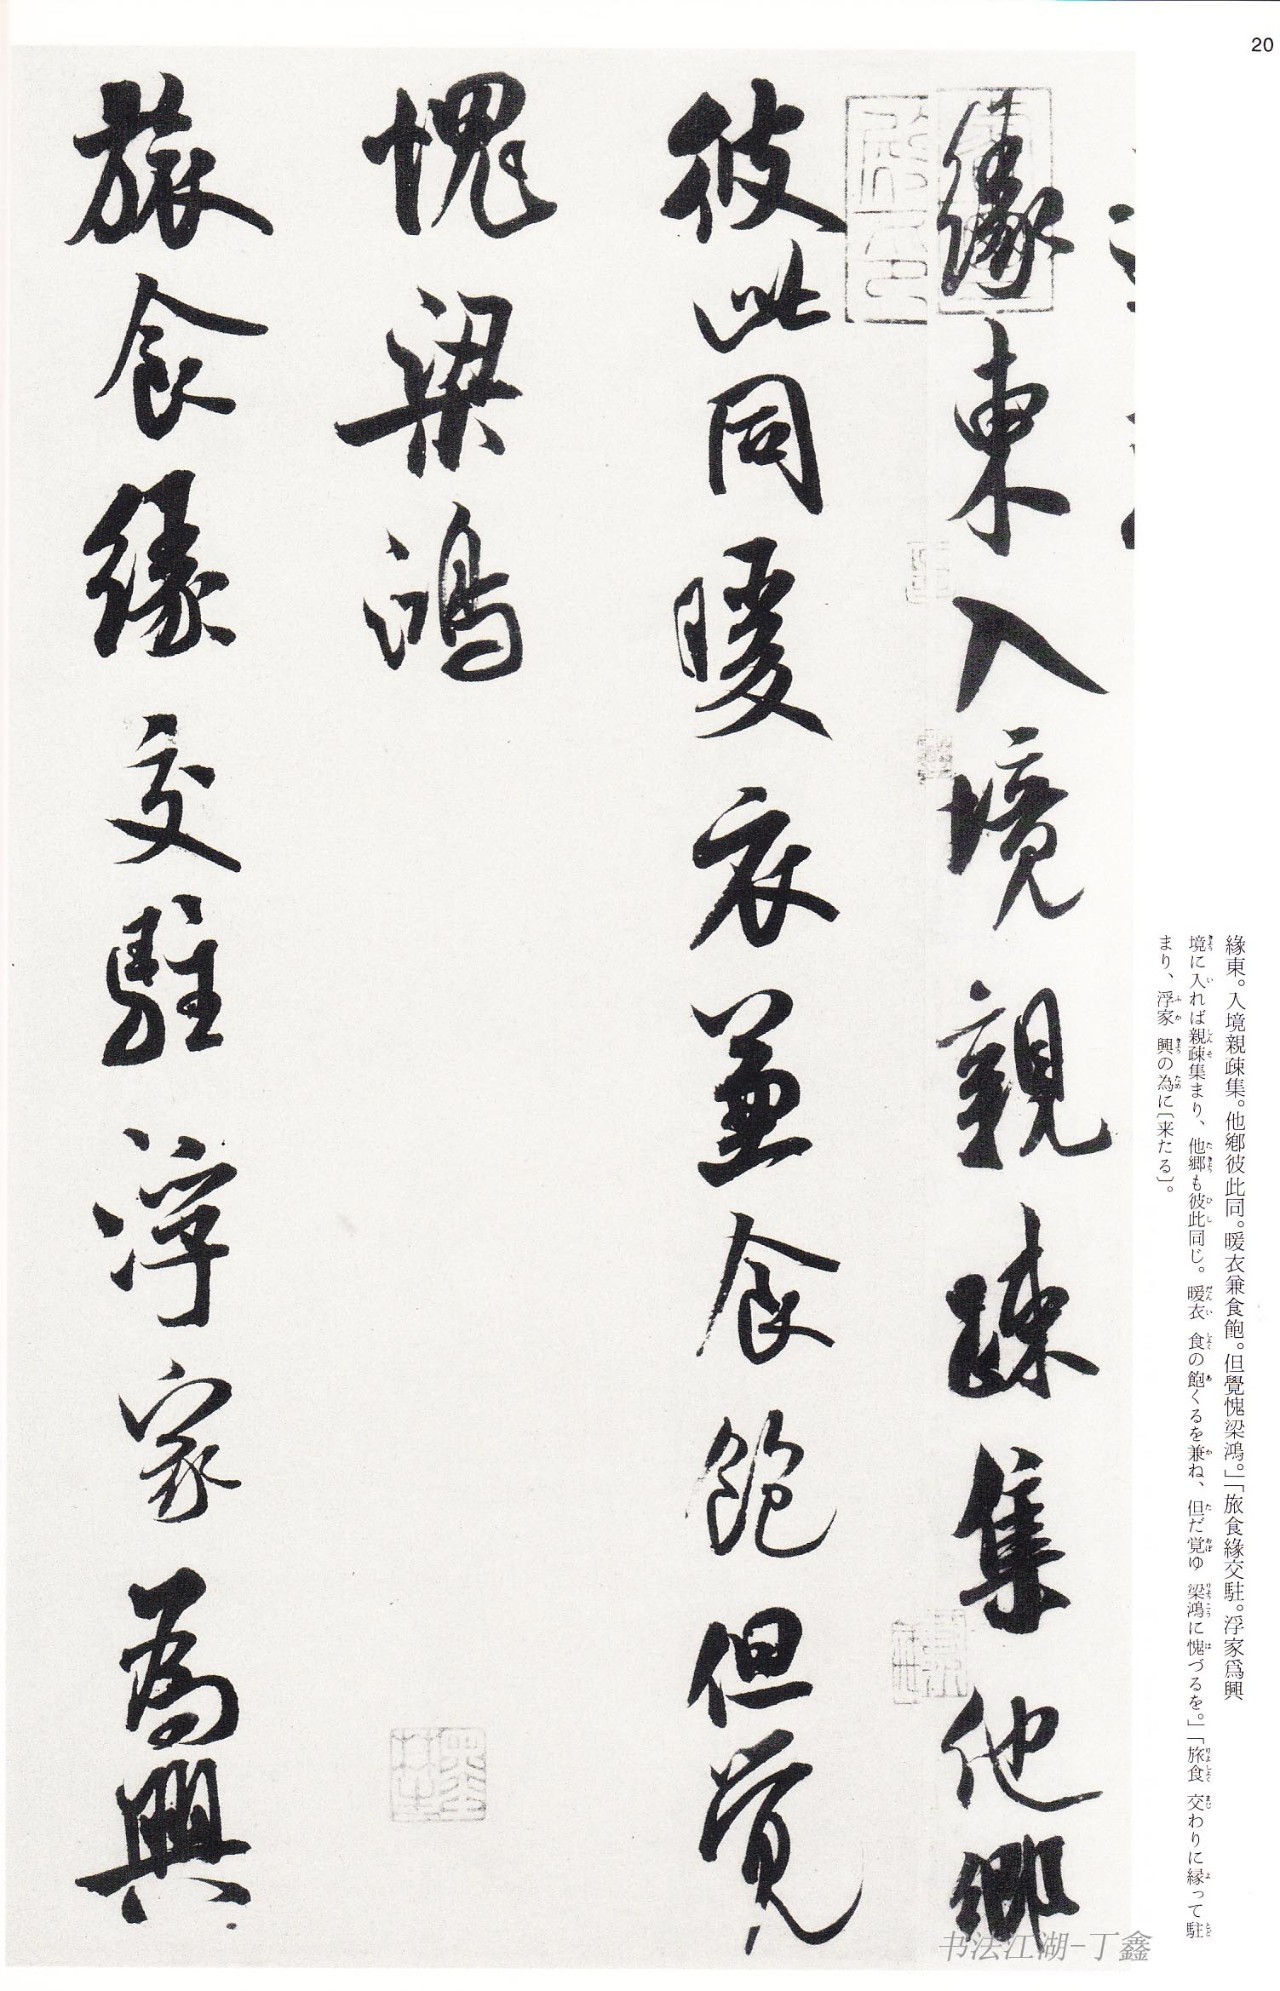 20
緣東入境親疎集他鄉
彼此同暖衣兼食飽但覺
愧梁鴻
旅食緣交駐浮家為興
緣東。入境親疎集。他鄕彼此同。暖衣兼食飽。但覺愧梁鴻。」「旅食緣交駐。浮家爲興
境に入れば親疎集まり、他郷も彼此同じ。暖衣 食の飽くるを兼ね、但だ覚ゆ 梁鴻に愧づるを。」「旅食 交わりに縁って駐
まり、浮家 興の為に〔来たる〕。
书法江湖-丁鑫